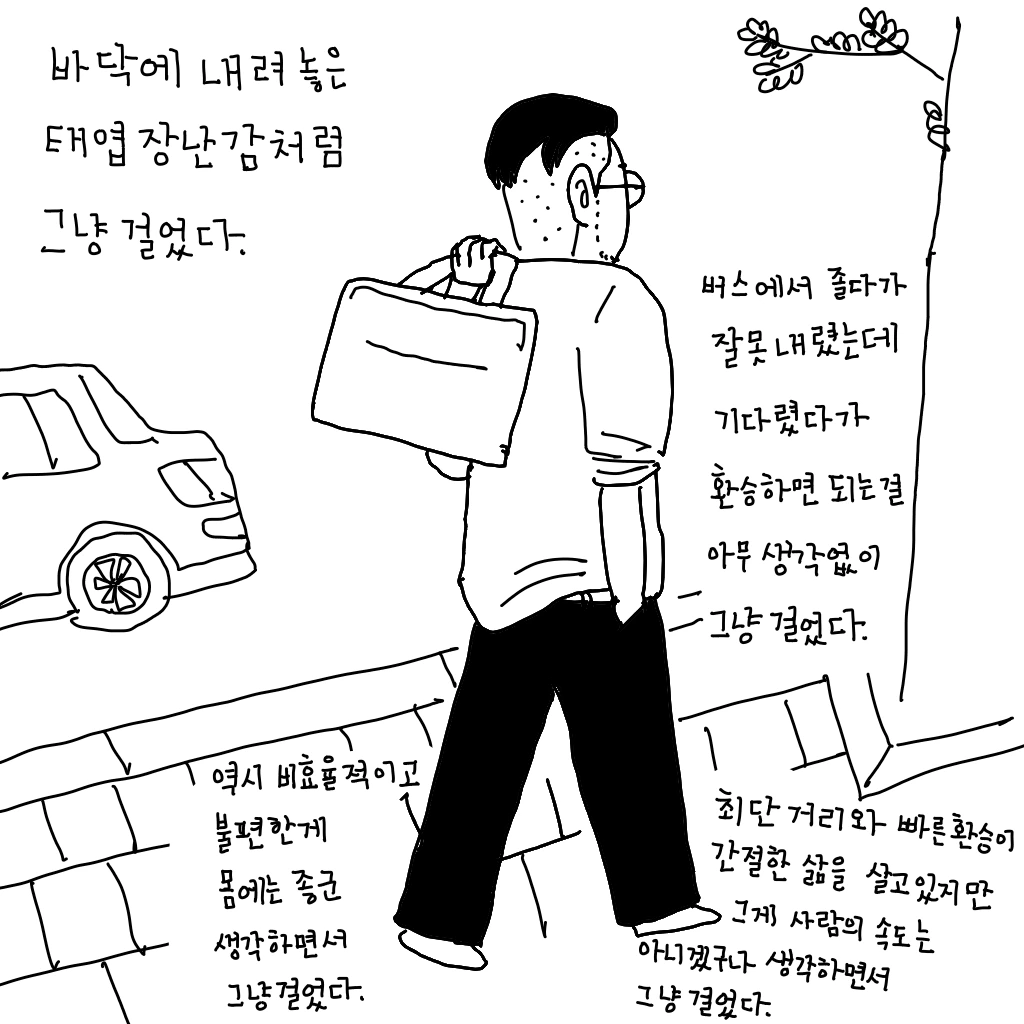 바닥에 내려놓은
태엽장난감처럼
그냥 걸었다.
버스에서 졸다가
잘못 내렸는데
기다렸다가
환승하면 되는걸
아무 생각없이
그냥 걸었다.
역시 비효율적이고
불편한게
몸에는 좋군
생각하면서
그냥걸었다.
최단거리와 빠른환승이
간절한 삶을 살고있지만
그게 사람의 속도는
아니겠구나 생각하면서
그냥 걸었다.